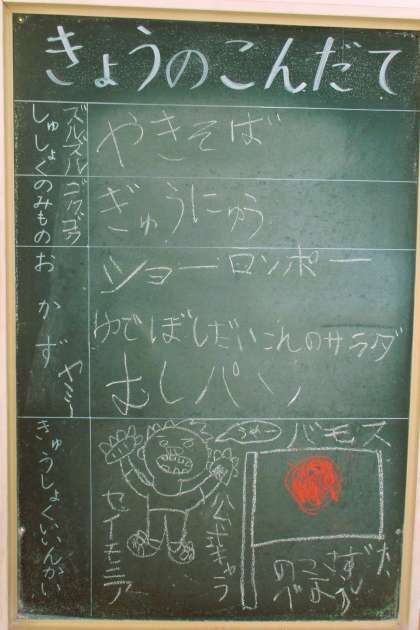 きょうのこんだて
しゅしょく
ズルズル
やきそば
のみもの
ゴクゴク
ぎゅうにゅう
おかず
ヤミー
ショーロンポー
ゆでぼしだいこんのサラダ
むしパン
きゅうしょくいいんかい
バモス
公立キャラ